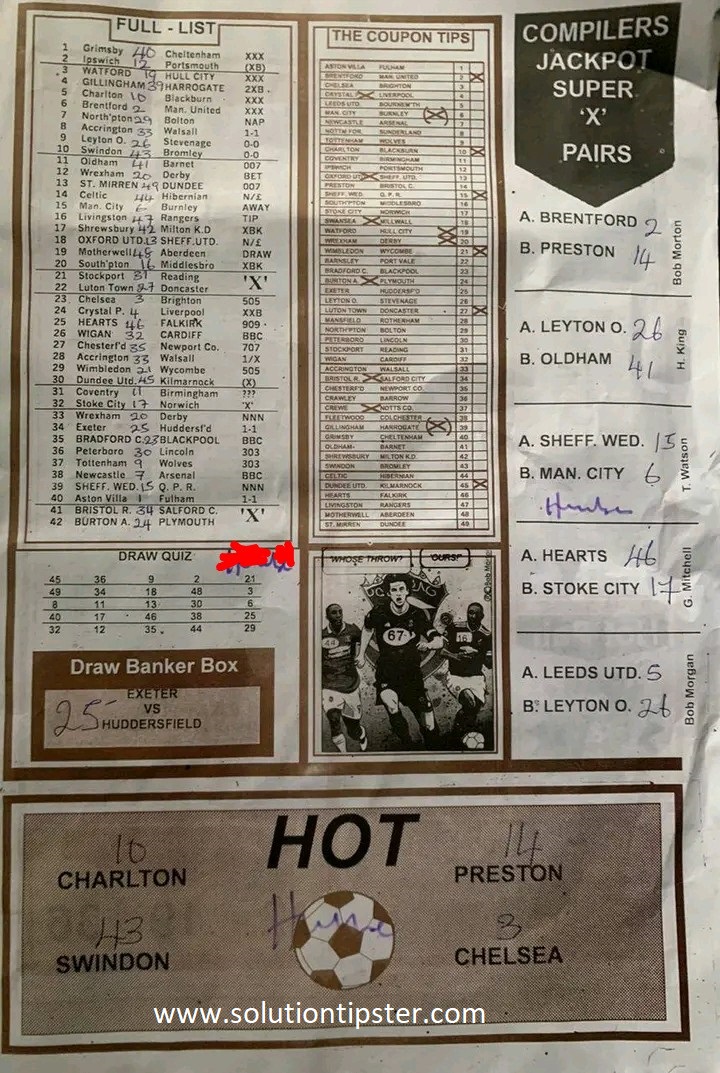 FULL - LIST
1 Grimsby 40 Cheltenham XXX
2 Ipswich 12 Portsmouth (XB)
3 WATFORD 19 HULL CITY XXX
4 GILLINGHAM 39 HARROGATE 2XB
5 Charlton 10 Blackburn XXX
6 Brentford 2 Man. United XXX
7 North'pton 29 Bolton NAP
8 Accrington 33 Walsall 1-1
9 Leyton O. 26 Stevenage 0-0
10 Swindon 43 Bromley 0-0
11 Oldham 41 Barnet 007
12 Wrexham 20 Derby BET
13 ST. MIRREN 49 DUNDEE 007
14 Celtic 44 Hibernian N/£
15 Man. City 6 Burnley AWAY
16 Livingston 47 Rangers TIP
17 Shrewsbury 42 Milton K.D XBK
18 OXFORD UTD. 13 SHEFF.UTD. N/£
19 Motherwell 48 Aberdeen DRAW
20 South'pton 16 Middlesbro XBK
21 Stockport 31 Reading
22 Luton Town 27 Doncaster 'X'
23 Chelsea 3 Brighton 505
24 Crystal P. 4 Liverpool XXB
25 HEARTS 46 FALKIRK 909
26 WIGAN 32 CARDIFF BBC
27 Chesterf'd 35 Newport Co. 707
28 Accrington 33 Walsall 1/X
29 Wimbledon 21 Wycombe 505
30 Dundee Utd. 45 Kilmarnock (X)
31 Coventry 11 Birmingham ???
32 Stoke City 17 Norwich 'X'
33 Wrexham 20 Derby NNN
34 Exeter 25 Huddersf'd 1-1
35 BRADFORD C. 23 BLACKPOOL BBC
36 Peterboro 30 Lincoln 303
37 Tottenham 9 Wolves 303
38 Newcastle 7 Arsenal BBC
39 SHEFF. WED. 15 Q. P. R. NNN
40 Aston Villa 1 Fulham 1-1
41 BRISTOL R. 34 SALFORD C.
42 BURTON A. 24 PLYMOUTH 'X'
DRAW QUIZ
45 36 9 2 21
49 34 18 48 3
8 11 13 30 6
40 17 46 38 25
32 12 35 44 29
Draw Banker Box
25 EXETER
VS
HUDDERSFIELD
THE COUPON TIPS
ASTON VILLA FULHAM 1
BRENTFORD MAN. UNITED 2 X
CHELSEA BRIGHTON 3
CRYSTAL P. LIVERPOOL 4
LEEDS UTD. BOURNEM'TH 5
MAN. CITY BURNLEY 6 (X)
NEWCASTLE ARSENAL 7
NOTTM FOR. SUNDERLAND 8
TOTTENHAM WOLVES 9
CHARLTON BLACKBURN 10 X
COVENTRY BIRMINGHAM 11
IPSWICH PORTSMOUTH 12
OXFORD UTD. SHEFF. UTD. 13
PRESTON BRISTOL C. 14
SHEFF. WED. Q. P. R. 15 X
SOUTH'PTON MIDDLESBRO 16
STOKE CITY NORWICH 17
SWANSEA MILLWALL 18
WATFORD HULL CITY 19 X
WREXHAM DERBY 20 X
WIMBLEDON WYCOMBE 21 X
BARNSLEY PORT VALE 22
BRADFORD C. BLACKPOOL 23
BURTON A. PLYMOUTH 24
EXETER HUDDERSF'D 25
LEYTON O. STEVENAGE 26
LUTON TOWN DONCASTER 27 X
MANSFIELD ROTHERHAM 28
NORTH'PTON BOLTON 29
PETERBORO LINCOLN 30
STOCKPORT READING 31
WIGAN CARDIFF 32
ACCRINGTON WALSALL 33
BRISTOL R. SALFORD CITY 34
CHESTERF'D NEWPORT CO. 35
CRAWLEY BARROW 36
CREWE NOTTS CO. 37
FLEETWOOD COLCHESTER 38
GILLINGHAM HARROGATE 39 (X)
GRIMSBY CHELTENHAM 40
OLDHAM BARNET 41
SHREWSBURY MILTON K.D. 42
SWINDON BROMLEY 43
CELTIC HIBERNIAN 44
DUNDEE UTD. KILMARNOCK 45 X
HEARTS FALKIRK 46
LIVINGSTON RANGERS 47
MOTHERWELL ABERDEEN 48
ST. MIRREN DUNDEE 49
'WHOSE THROW? 'OURS!'
44 67 16
COMPILERS
JACKPOT
SUPER
'X'
PAIRS
A. BRENTFORD 2
B. PRESTON 14
Bob Morton
A. LEYTON O. 26
B. OLDHAM 41
H. King
A. SHEFF. WED. 15
B. MAN. CITY 6
T. Watson
A. HEARTS 46
B. STOKE CITY 17
G. Mitchell
A. LEEDS UTD. 5
B. LEYTON O. 26
Bob Morgan
HOT
10 14
CHARLTON PRESTON
43 3
SWINDON CHELSEA
www.solutiontipster.com